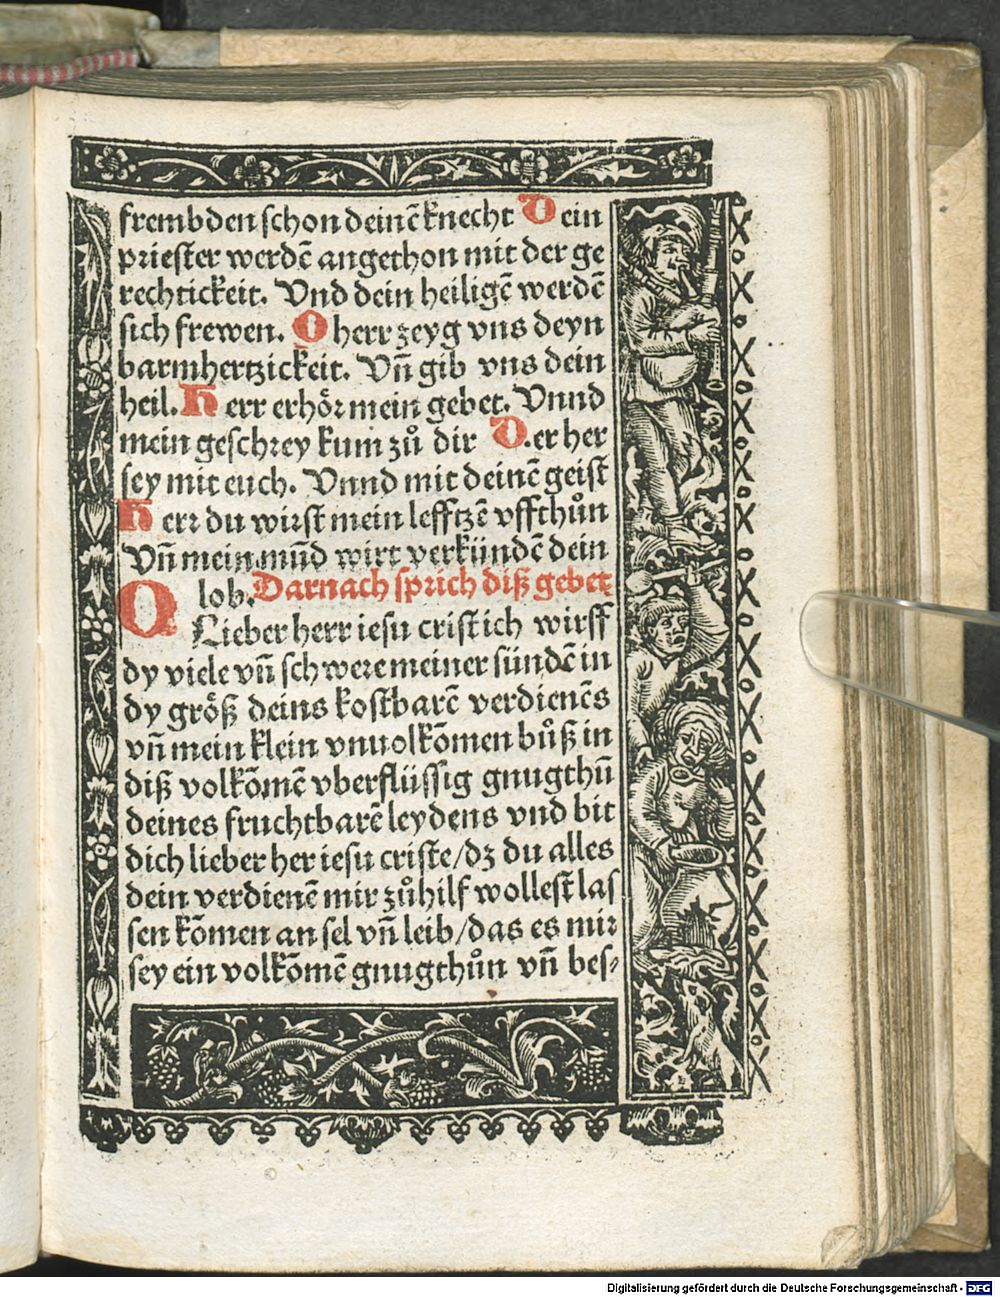 frembden schon deinē knecht Dein
priester werdē angethon mit der ge
rechtickeit. Vnd dein heiligē werdē
sich frewen. O herr zeyg vns deyn
barmhertzickeit. Vn̄ gib vns dein
heil. Herr erhör mein gebet. Vnnd
mein geschrey kum zů dir D.er her
sey mit euch. Vnnd mit deinē geist
Herr du wirst mein lefftzē vffthůn
Vn̄ mein mūd wirt verkündē dein
lob. Darnach sprich diß gebet
O Lieber herr iesu crist ich wirff
dy viele vn̄ schwere meiner sündē in
dy größ deins kostbarē verdienēs
vn̄ mein klein vnuolkōmen bůß in
diß volkōmē vberflüssig gnugthū
deines fruchtbarē leydens vnd bit
dich lieber her iesu criste/dz du alles
dein verdienē mir zůhilf wollest las
sen kōmen an sel vn̄ leib/das es mir
sey ein volkōmē gnugthůn vn̄ bes⸗
Digitalisierung gefördert durch die Deutsche Forschungsgemeinschaft - DFG